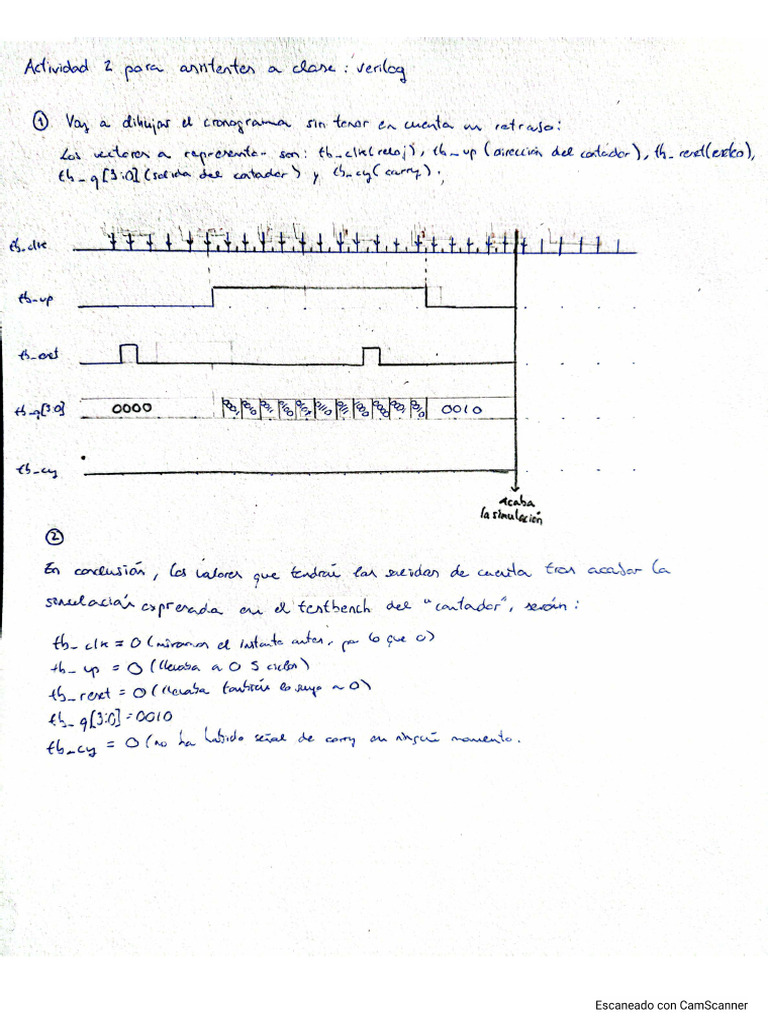 Actividad 2 para asistentes a clase: verilog
① Voy a dibujar el cronograma sin tener en cuenta un retraso:
Los vectores a representar son: tb_clk (reloj), tb_up (dirección del contador), tb_reset
tb_q[3:0] (salida del contador) y tb_cy (carry).
tb_clk
tb_up
tb_reset
tb_q[3:0] 0000 0010
tb_cy
acaba
la simulación
②
En conclusión, los valores que tendrán las salidas de cuenta tras acabar la
simulación expresada en el testbench del "contador", serán:
tb_clk = 0 (miramos el instante antes, por lo que 0)
tb_up = 0 (llevaba a 0 5 ciclos)
tb_reset = 0 (llevaba también lo suyo a 0)
tb_q[3:0] = 0010
tb_cy = 0 (no ha habido señal de carry en ningún momento.
Escaneado con CamScanner